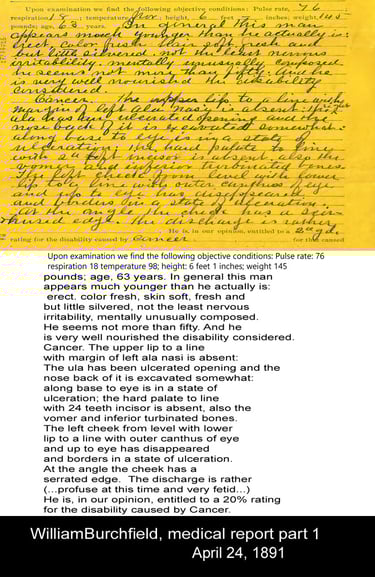 Upon examination we find the following objective conditions: Pulse rate, 76
respiration, 18; temperature, height, 6 feet 1 inches; weight, 145
pounds; age, 63 years. In general this man
appears much younger than he actually is:
erect. color fresh, skin soft, fresh and
but little silvered, not the least nervous
irritability. mentally unusually composed
he seems not more than fifty. And he
is very well nourished the disability
considered.
Cancer. The upper lip to a line with
margin of left ala nasi is absent: This
ula has been ulcerated opening and the
nose back of it is excavated somewhat:
along base to eye is in a state of
ulceration; the hard palate to line
with 2d left incisor is absent, also the
vomer and inferior turbinated bones.
The left cheek from level with lower
lip to a line with outer canthus of eye
and up to eye has disappeared
and borders in a state of ulceration.
At the angle the cheek has a
serrated edge. The discharge is rather
He is, in our opinion, entitled to a
rating for the disability caused by Cancer for this caused
Upon examination we find the following objective conditions: Pulse rate: 76
respiration 18 temperature 98; height: 6 feet 1 inches; weight 145
pounds; age, 63 years. In general this man
appears much younger than he actually is:
erect. color fresh, skin soft, fresh and
but little silvered, not the least nervous
irritability, mentally unusually composed.
He seems not more than fifty. And he
is very well nourished the disability considered.
Cancer. The upper lip to a line
with margin of left ala nasi is absent:
The ula has been ulcerated opening and the
nose back of it is excavated somewhat:
along base to eye is in a state of
ulceration; the hard palate to line
with 24 teeth incisor is absent, also the
vomer and inferior turbinated bones.
The left cheek from level with lower
lip to a line with outer canthus of eye
and up to eye has disappeared
and borders in a state of ulceration.
At the angle the cheek has a
serrated edge. The discharge is rather
(...profuse at this time and very fetid...)
He is, in our opinion, entitled to a 20% rating
for the disability caused by Cancer.
WilliamBurchfield, medical report part 1
April 24, 1891